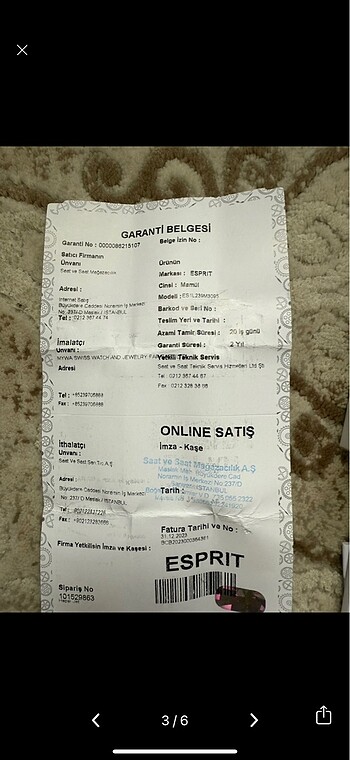 GARANTİ BELGESİ
Garanti No : 0000086215107
Belge İzin No :
Satıcı Firmanın
Ünvanı
Saat ve Saat Mağazacılık
Ürünün
Markası : ESPRIT
Cinsi : Mamül
Adresi :
Modeli :
İnternet Satış
Büyükdere Caddesi Noramin İş Merkezi
No: 237/D Maslak / İSTANBUL
Tel : 0212 367 44 74
Barkod ve Seri No :
Teslim Yeri ve Tarihi :
Azami Tamir Süresi : 20 iş günü
Garanti Süresi : 2 Yıl
İmalatçı
Ünvanı :
MYWA SWISS WATCH AND JEWELRY
Yetkili Teknik Servis
Adresi
Saat ve Saat Teknik Servis Hizmetleri Ltd Şti
Tel : 0212 367 44 67
Fax : 0212 328 38 06
Tel :
Fax :
ONLINE SATIŞ
İmza - Kaşe
İthalatçı
Ünvanı :
Saat Ve Saat San.Tic.A.Ş
Saat ve Saat Mağazacılık A.Ş
Maslak Mah. Büyükdere Cad
Noramin İş Merkezi No:237/D
Adresi :
Büyükdere Caddesi Noramin İş Merkezi
No: 237/ D Maslak / İSTANBUL
Tarih :
Tel :
Fax :
Fatura Tarihi ve No :
31.12.2023
Firma Yetkilisin İmza ve Kaşesi :
ESPRIT
Sipariş No
101529863
3 / 6